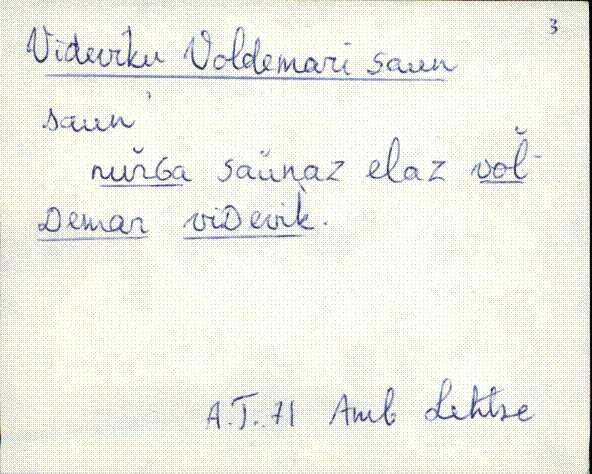 3
Videviku Voldemari saun
saun'
nuřGa saünaz elaz vol̆-
Demar viDevìk.
A.T. 71 Amb Lehtse